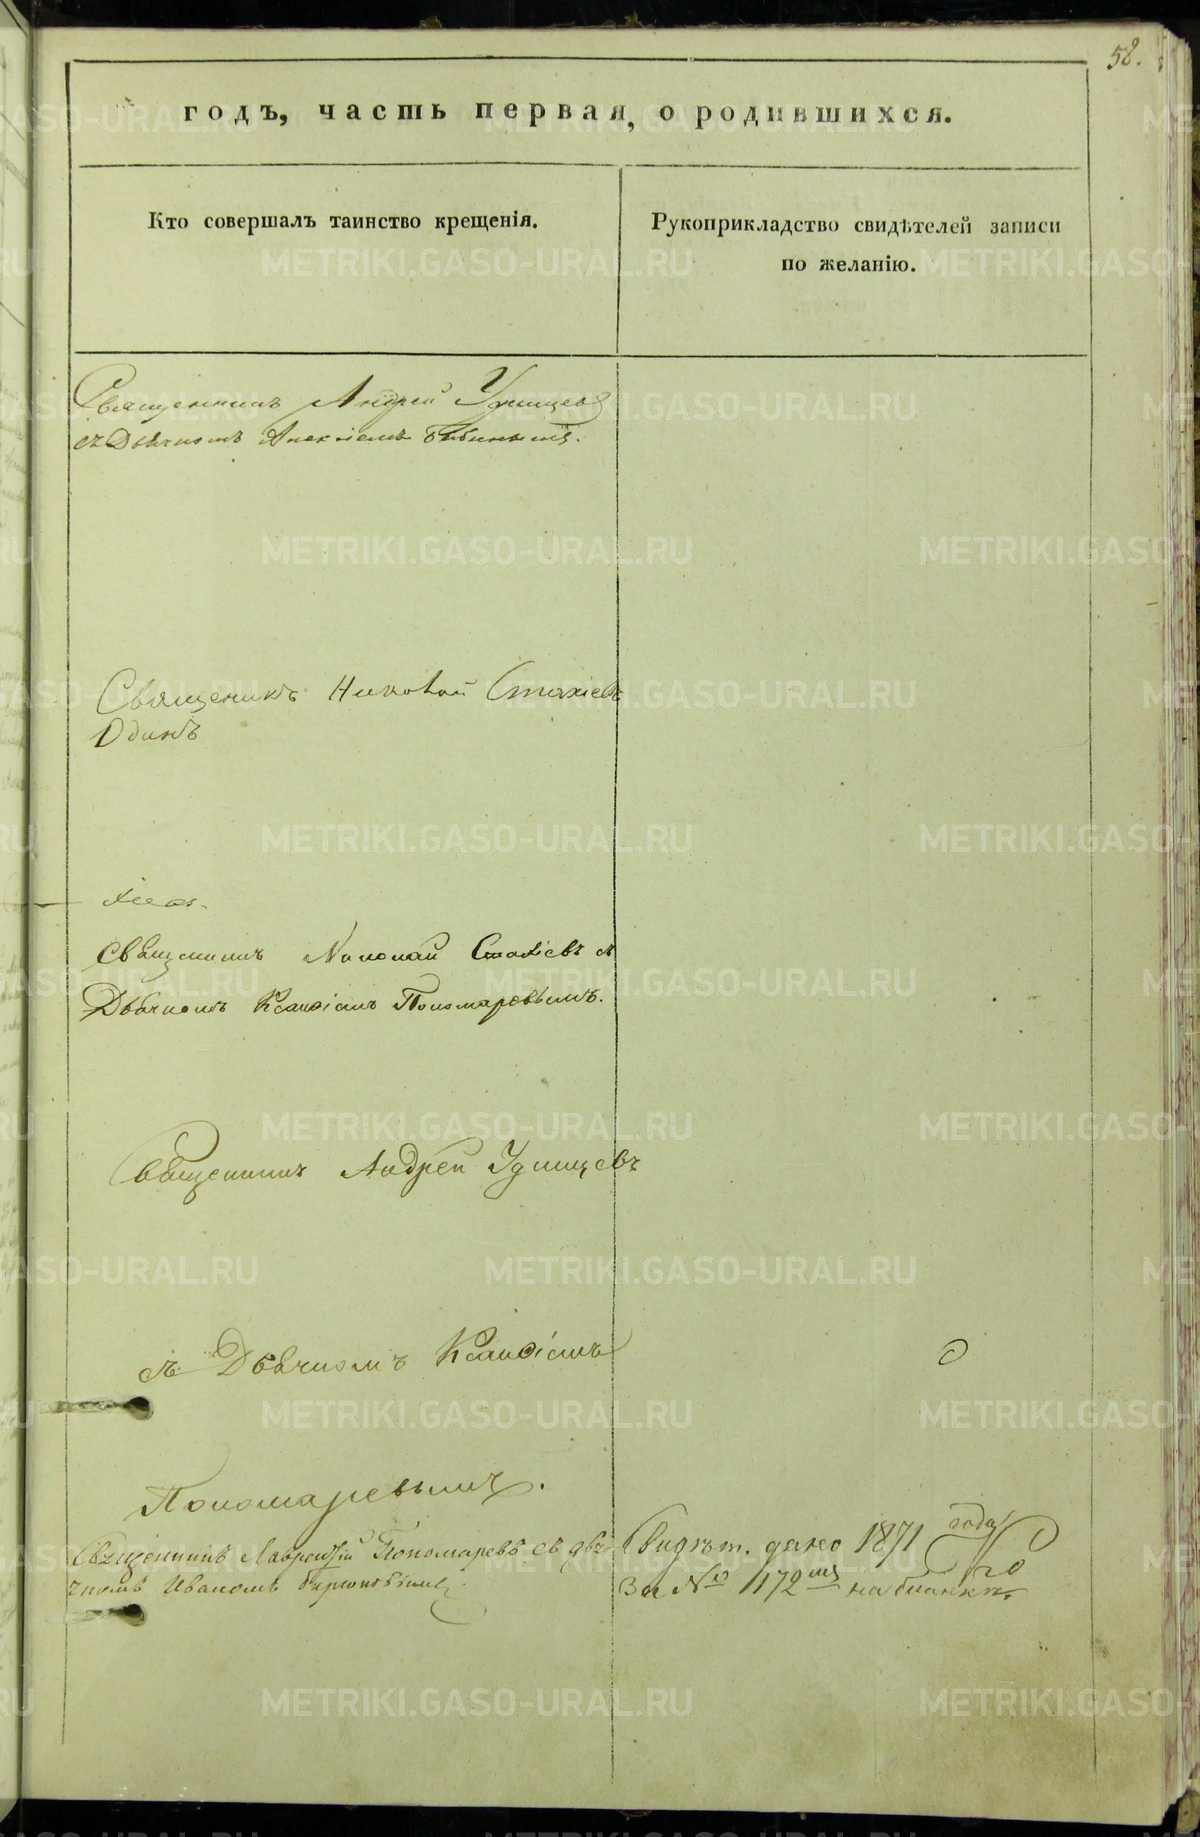 58.
годъ, часть первая, о родившихся.
Кто совершалъ таинство крещенія.
Рукоприкладство свидѣтелей записи
по желанію.
Священникъ Андрей Удинцевъ
съ Дьячкомъ Алексіемъ
Священикъ Николай Стахіевъ
Одинъ
Священникъ Николай Стахіевъ съ
Дьячкомъ Ксанфіемъ Пономаревымъ.
Священникъ Андрей Удинцевъ
съ Дьячкомъ Ксанфіемъ
Пономаревымъ.
Священникъ Лаврентій Пономаревъ съ дья
чкомъ Иваномъ
Свидѣт. дано 1871 года
За № 1172 на бланкѣ
METRIKI.GASO-URAL.RU